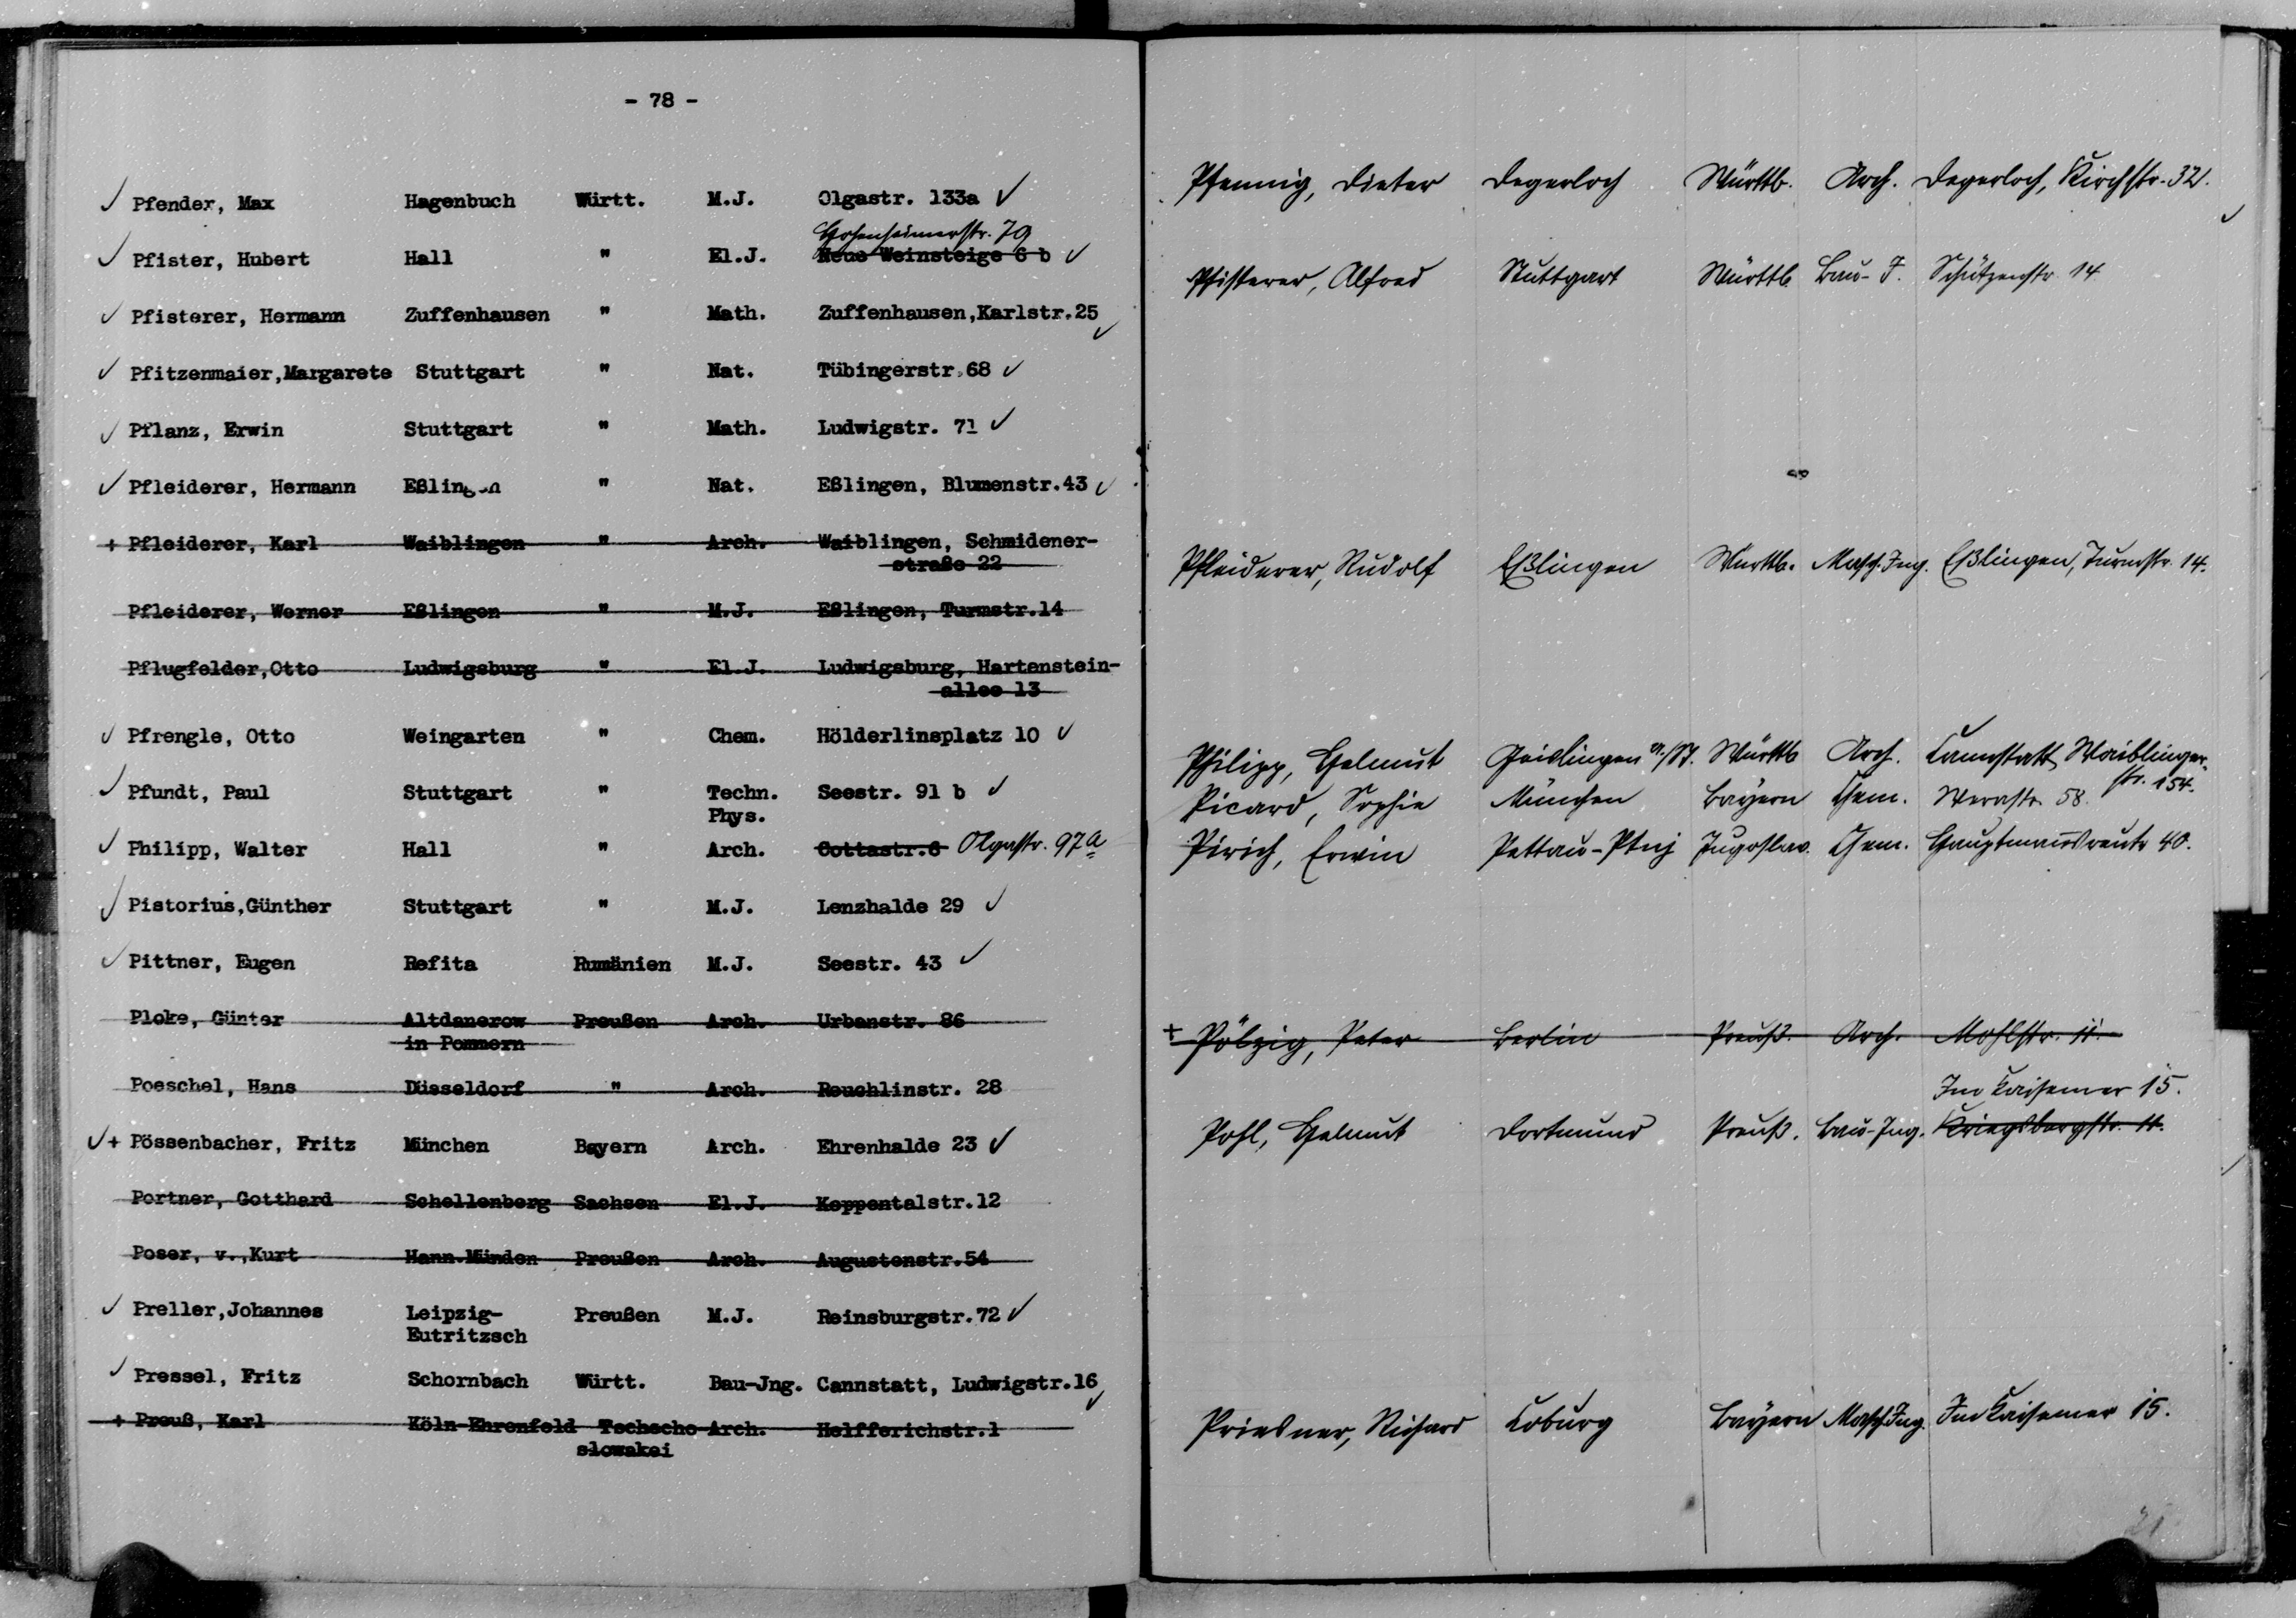 - 78 -
Pfender, Max Hagenbuch Württ. M.J. Olgastr. 133a
Hohenheimerstr. 79
Pfister, Hubert Hall " El.J. Neue Weinsteige 6 b
Pfisterer, Hermann Zuffenhausen " Math. Zuffenhausen,Karlstr.25
Pfitzenmaier,Margarete Stuttgart " Nat. Tübingerstr.68
Pflanz, Erwin Stuttgart " Math. Ludwigstr. 71
Pfleiderer, Hermann Eßlingen " Nat. Eßlingen, Blumenstr.43
+ Pfleiderer, Karl Waiblingen " Arch. Waiblingen, Schmidener-
straße 22
Pfleiderer, Werner Eßlingen " M.J. Eßlingen, Turmstr.14
Pflugfelder,Otto Ludwigsburg " El.J. Ludwigsburg, Hartenstein-
allee 13
Pfrengle, Otto Weingarten " Chem. Hölderlinsplatz 10
Pfundt, Paul Stuttgart " Techn. Seestr. 91 b
Phys.
Philipp, Walter Hall " Arch. Cottastr.6 Olgastr. 97a
Pistorius,Günther Stuttgart " M.J. Lenzhalde 29
Pittner, Eugen Refita Rumänien M.J. Seestr. 43
Ploke, Günter Altdanerow Preußen Arch. Urbanstr. 86
in Pommern
Poeschel, Hans Düsseldorf " Arch. Reuchlinstr. 28
+ Pössenbacher, Fritz München Bayern Arch. Ehrenhalde 23
Portner, Gotthard Schellenberg Sachsen El.J. Koppentalstr.12
Poser, v.,Kurt Hann.Münden Preußen Arch. Augustenstr.54
Preller,Johannes Leipzig- Preußen M.J. Reinsburgstr.72
Eutritzsch
Pressel, Fritz Schornbach Württ. Bau-Jng. Cannstatt, Ludwigstr.16
+ Preuß, Karl Köln-Ehrenfeld Tschecho Arch. Helfferichstr.1
slowakei
Pfennig, Dieter Degerloch Württb. Arch. Degerloch, Kirchstr. 32.
Pfisterer, Alfred Stuttgart Württb Bau-J. Schützenstr. 14
Pfleiderer, Rudolf Eßlingen Württb. Masch.Ing. Eßlingen, Turmstr. 14.
Philipp, Helmut Geislingen a./St. Württb Arch. Cannstatt, Waiblinger-
str. 154.
Picard, Sophie München Bayern Chem. Werastr. 58.
Pirich, Erwin Pettau-Ptuj Jugoslav. Chem. Hauptmannsreute 40.
+ Pölzig, Peter Berlin Preuß. Arch. Mohlstr. 11.
Im Kaisemer 15.
Pohl, Helmut Dortmund Preuß. Bau-Ing. Kriegsbergstr. 11.
Priesner, Richard Coburg Bayern Masch.Ing. Im Kaisemer 15.
21